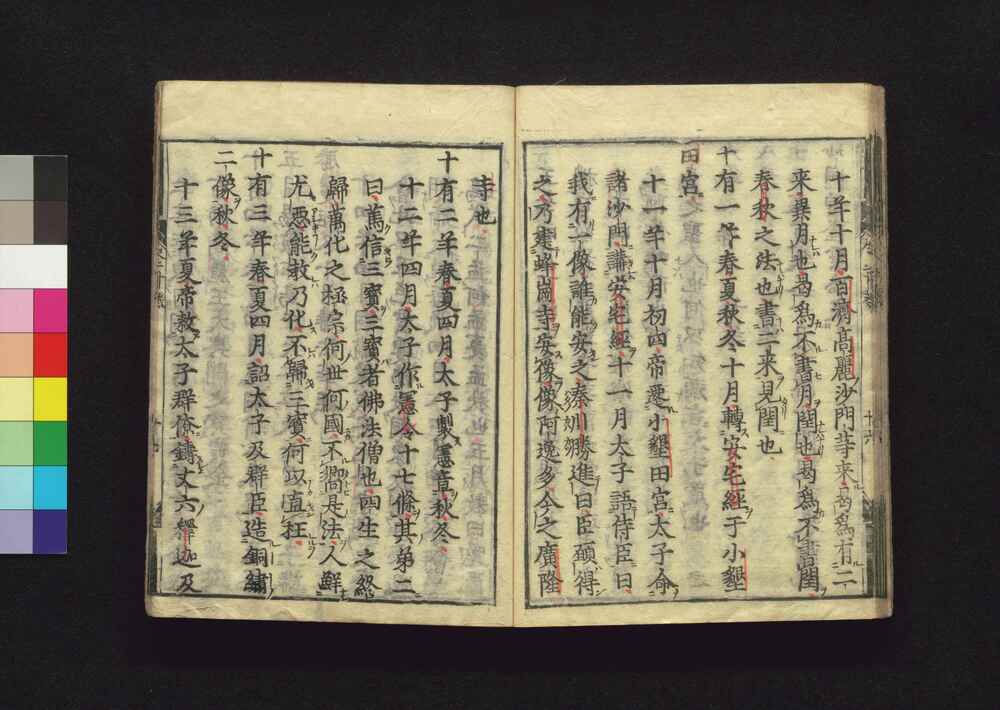 十年十月百濟高麗沙門等来曷爲有二
来異月也曷爲不書月閏也曷爲不書閏
春秋之法也書二来見閏也
十有一年春夏秋冬十月轉安宅經于小墾
田宮
十一年十月初四帝遷小墾田宮太子命
諸沙門講安宅經十一月太子語侍臣曰
我有一像誰能安之秦川勝進曰臣願得
之乃建蜂岡寺安後像阿逸多今之廣隆
寺也
十有二年春夏四月太子製憲章秋冬
十二年四月太子作憲令十七條其第二
曰篤信三寳三寳者佛法僧也四生之終
歸萬化之極宗何世何國不嚮是法人鮮
尤惡能敎乃化不歸三寳何以直枉
十有三年春夏四月詔太子及群臣造銅繍
二像秋冬
十三年夏帝敕太子群僚鑄丈六釋迦及